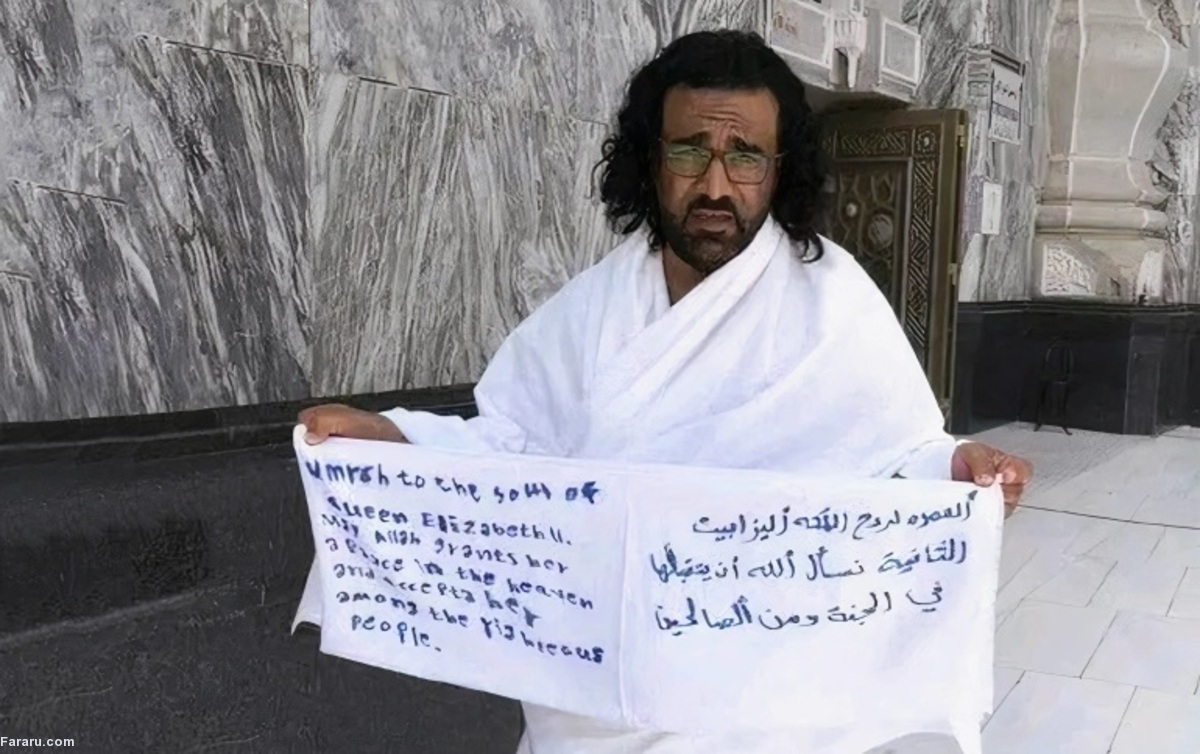 Umrah to the soul of
Queen Elizabeth II.
May Allah grants her
a place in the heaven
and accepta her
among the righteous
people.
ألعمره لروح الملكه أليزابيث
الثانية نسأل ألله أن يتقبلها
في الجنة ومن ألصالحين
Fararu.com